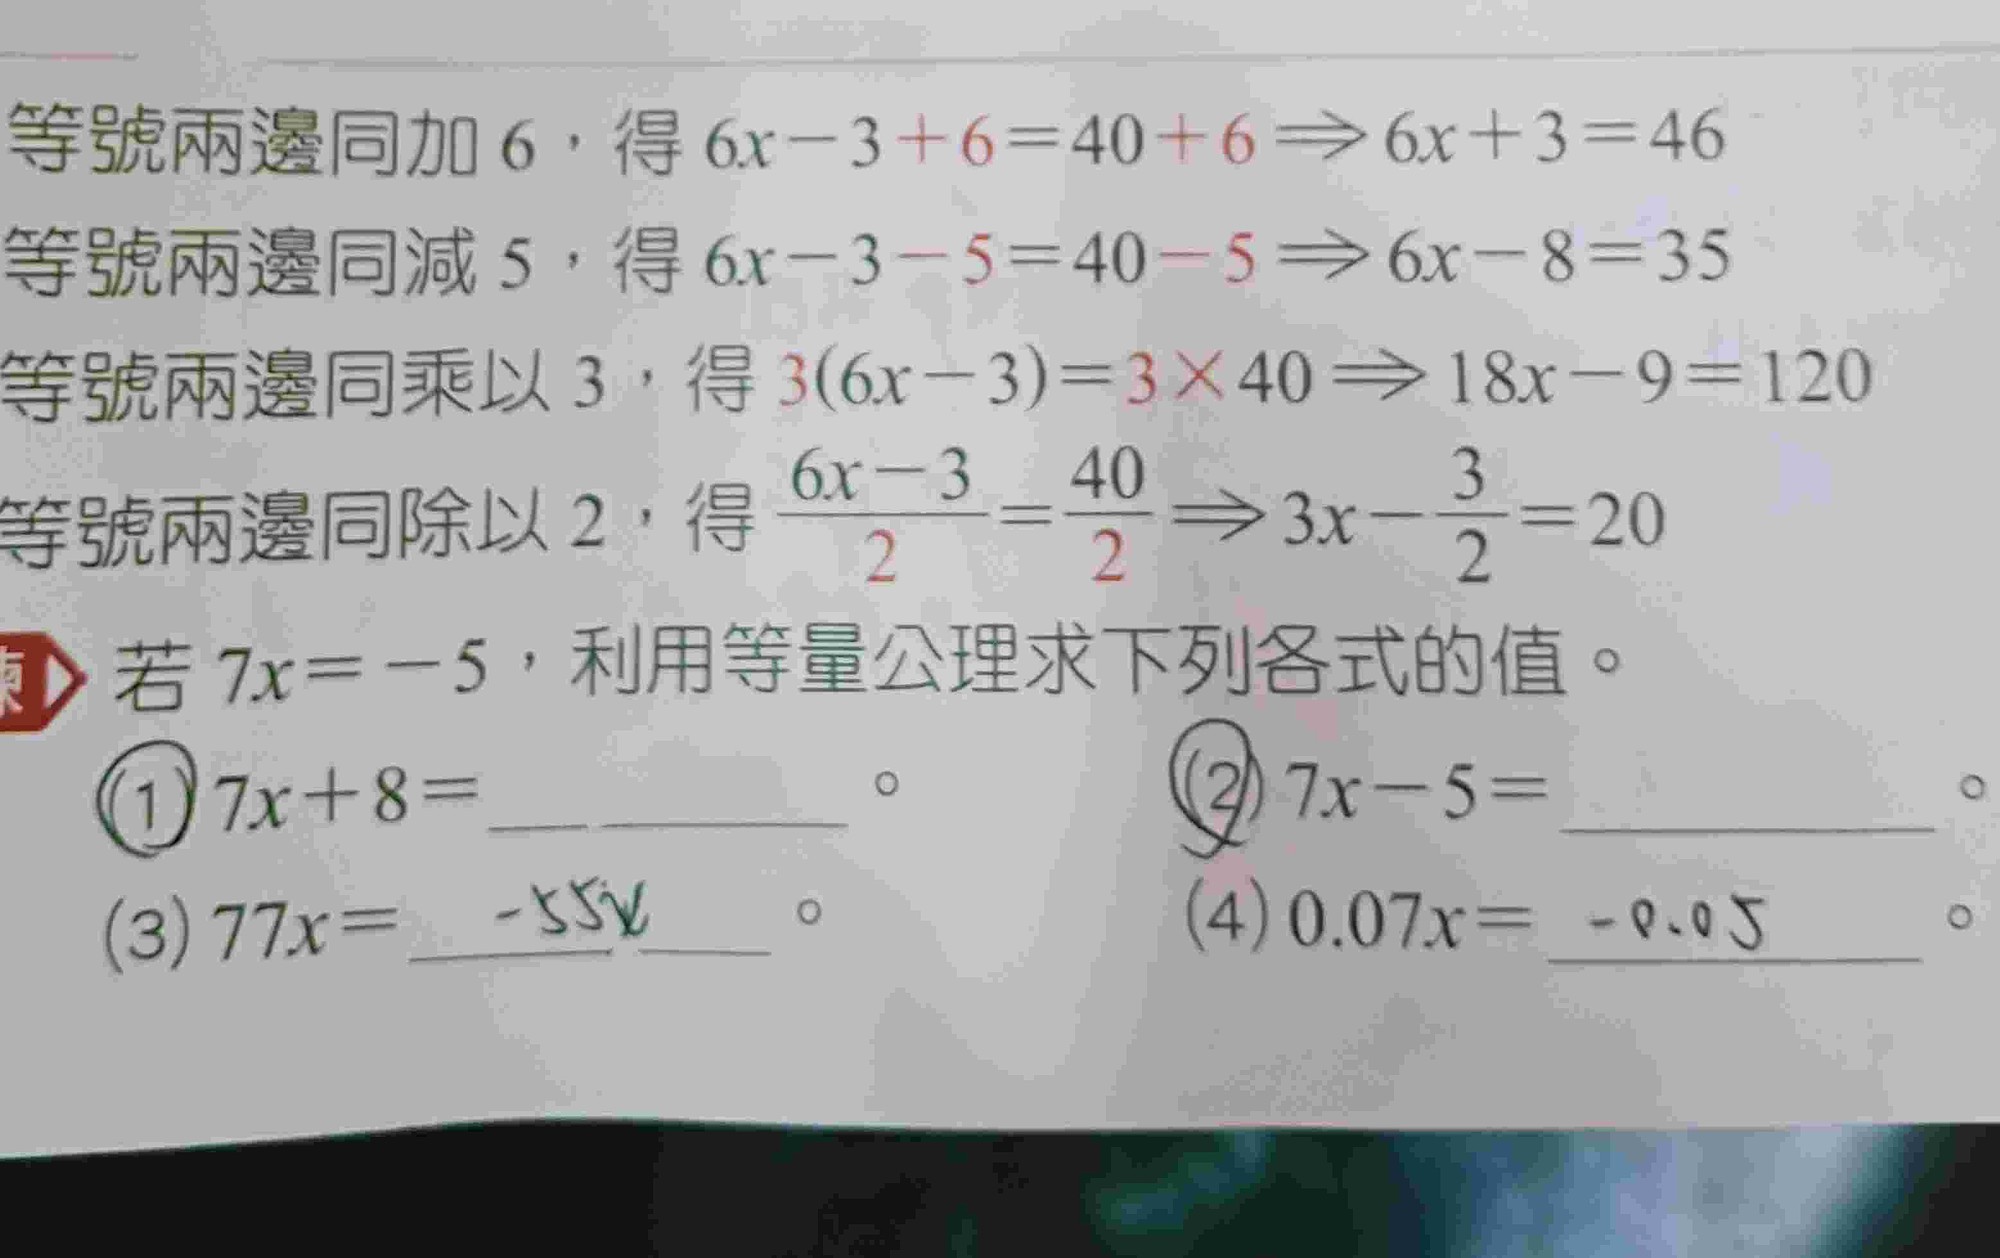 等號兩邊同加 6，得 6x－3＋6＝40＋6⇒6x＋3＝46
等號兩邊同減 5，得 6x－3－5＝40－5⇒6x－8＝35
等號兩邊同乘以 3，得 3(6x－3)＝3×40⇒18x－9＝120
等號兩邊同除以 2，得 \frac{6x－3}{2}＝\frac{40}{2}⇒3x－\frac{3}{2}＝20
若 7x＝－5，利用等量公理求下列各式的值。
(1) 7x＋8＝＿＿＿。 (2) 7x－5＝＿＿＿。
(3) 77x＝ -55x 。 (4) 0.07x＝ -0.05 。